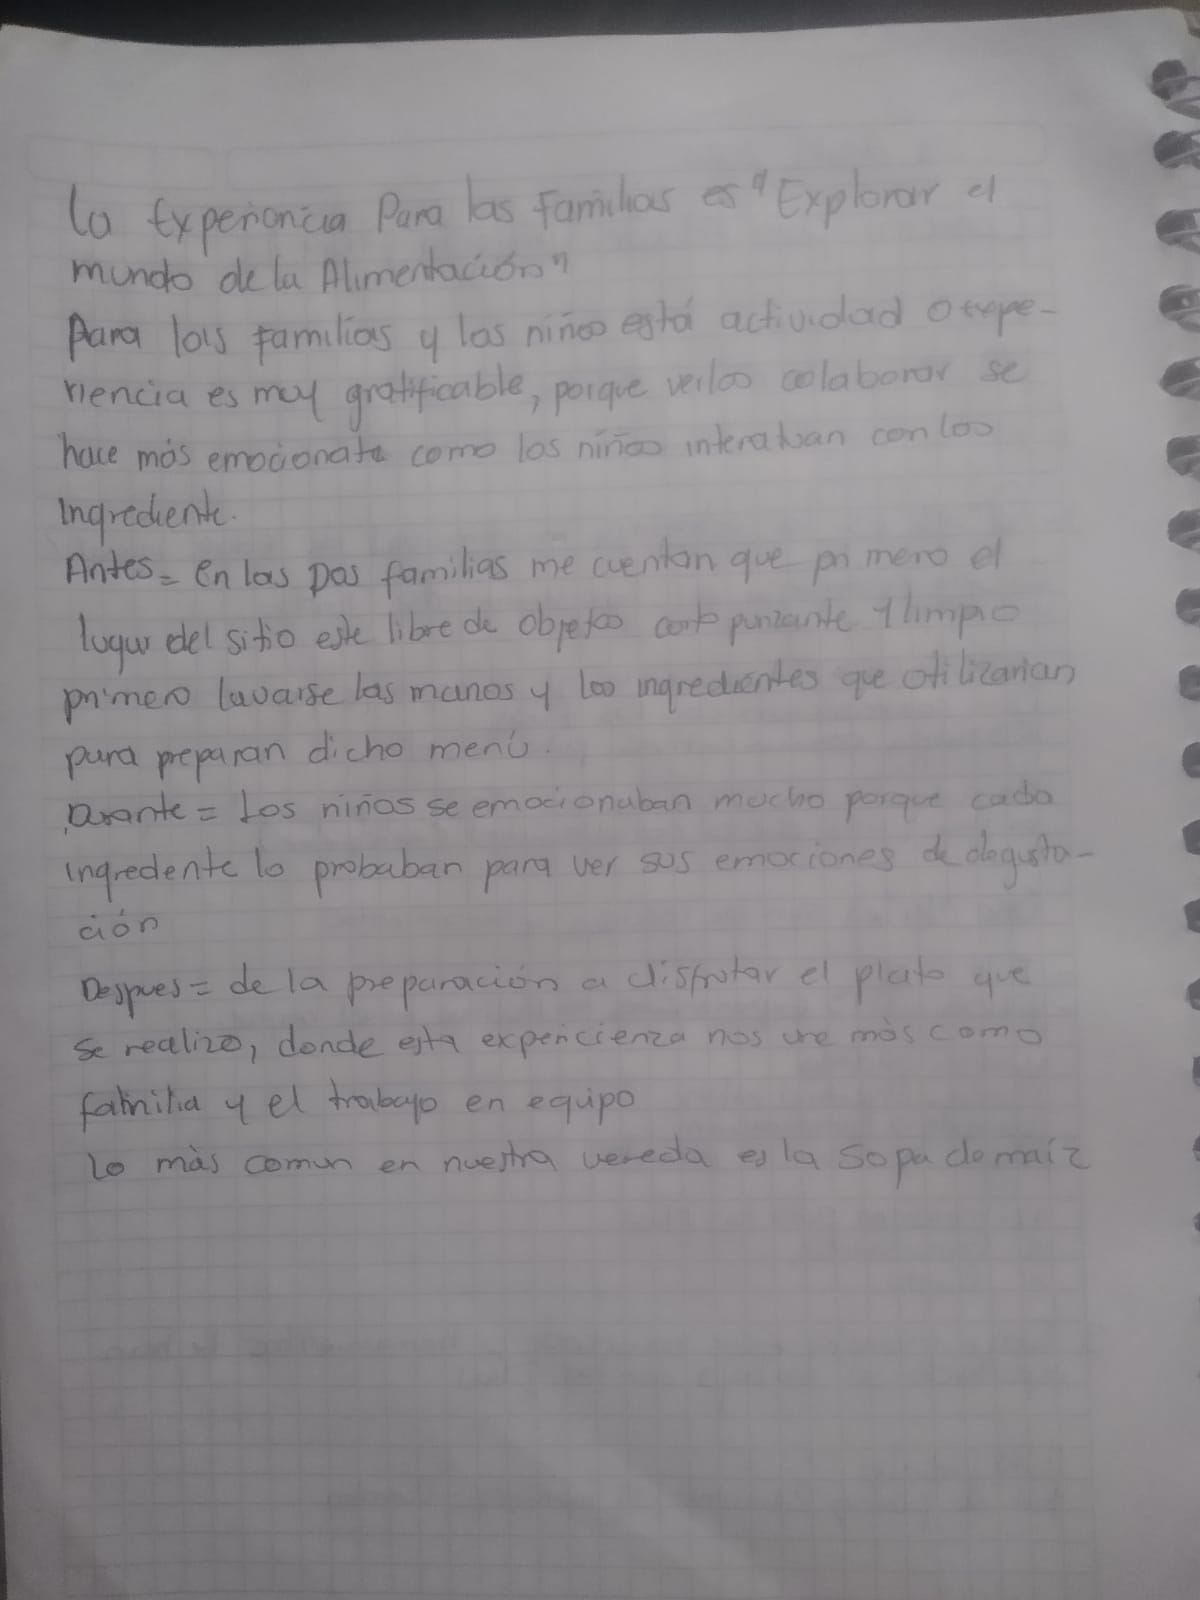 La Experiencia Para las Familias es "Explorar el
mundo de la Alimentación"
Para las familias y los niños está actividad o expe-
riencia es muy gratificable, porque verlos colaborar se
hace más emocionate como los niños interatuan con los
Ingrediente.
Antes = En las Dos familias me cuentan que primero el
lugar del sitio este libre de objetos corto punzante y limpio
primero lavarse las manos y los ingredientes que otilizarian
para preparan dicho menú.
Durante = Los niños se emocionaban mucho porque cada
ingredente lo probaban para ver sus emociones de degusta-
ción
Despues = de la preparación a disfrutar el plato que
se realizo, donde esta expericienza nos une más como
familia y el trabajo en equipo
Lo màs comun en nuestra vereda es la Sopa de maíz